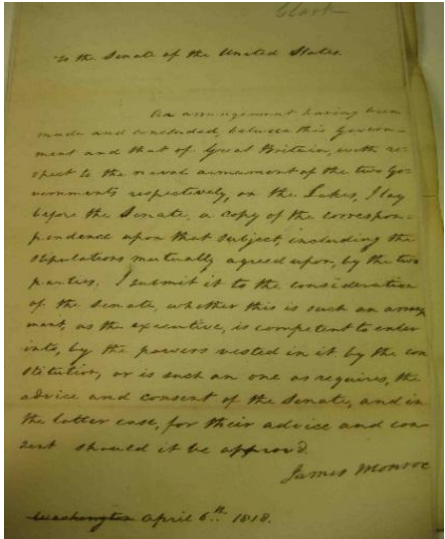 Clark
To the Senate of the United States.
An arrangement having been
made and concluded, between this Govern-
ment and that of Great Britain, with re-
spect to the naval armament of the two Go-
vernments respectively, on the Lakes, I lay
before the Senate, a copy of the correspon-
pendence upon that subject, including the
stipulations mutually agreed upon, by the two
parties. I submit it to the consideration
of the Senate, whether this is such an arrange
ment, as the executive, is competent to enter
into, by the powers vested in it by the con
stitution, or is such an one as requires, the
advice and consent of the Senate, and in
the latter case, for their advice and con-
sent should it be approv'd.
James Monroe
Washington April 6th. 1818.